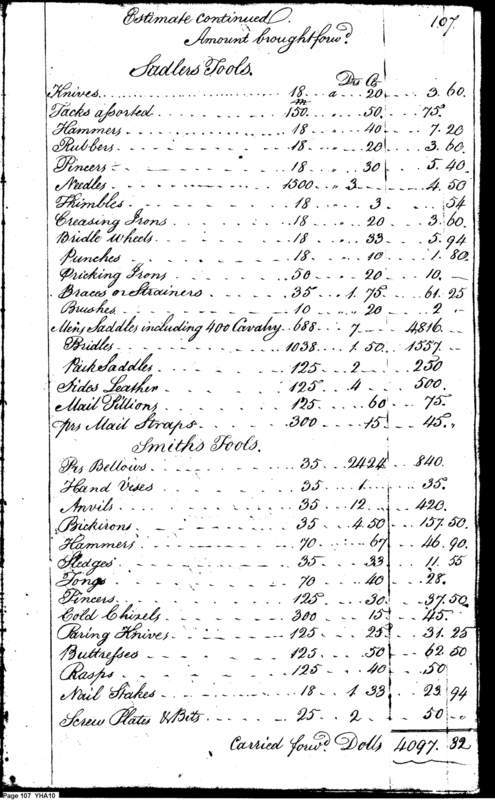 Estimate continued 107.
Amount brought forwd.
Sadlers Tools.
Drs Cts
Knives 18 a 20 3.60.
m
Tacks assorted 150. 50. 75.
Hammers 18 40 7.20
Rubbers 18 20 3.60.
Pincers 18 30 5.40
Needles 1500 " 3 4.50
Thimbles 18 3 54
Creasing Irons 18 20 3.60.
Bridle wheels 18 33 5.94
Punches 18 10 1.80.
Pricking Irons 50 20 10. —
Braces or Strainers 35 1.75. 61.25
Brushes 10 20 2 "
Mens Saddles including 400 Cavalry 688 7 4816.
Bridles 1038 1.50. 1557.
Pack Saddles 125 2 250
Sides Leather 125 4 500.
Mail Pillions 125 60 75.
prs Mail Straps 300 15. 45. "
Smiths Tools.
Prs Bellows 35 24 24 840.
Hand Vises 35 1 35.
Anvils 35 12 420.
Bickirons 35 4.50 157.50.
Hammers 70 67 46.90.
Sledges 35 33 11.55
Tongs 70 40 28.
Pincers 125 30 37.50.
Cold Chizels 300 15 45.
Paring Knives 125 25 31.25
Buttresses 125 50 62.50
Rasps 125 40 50
Nail Stakes 18 1.33 23.94
Screw Plates & Bits 25 2 50 "
Carried forwd. Dolls 4097.32
Page 107 YHA10